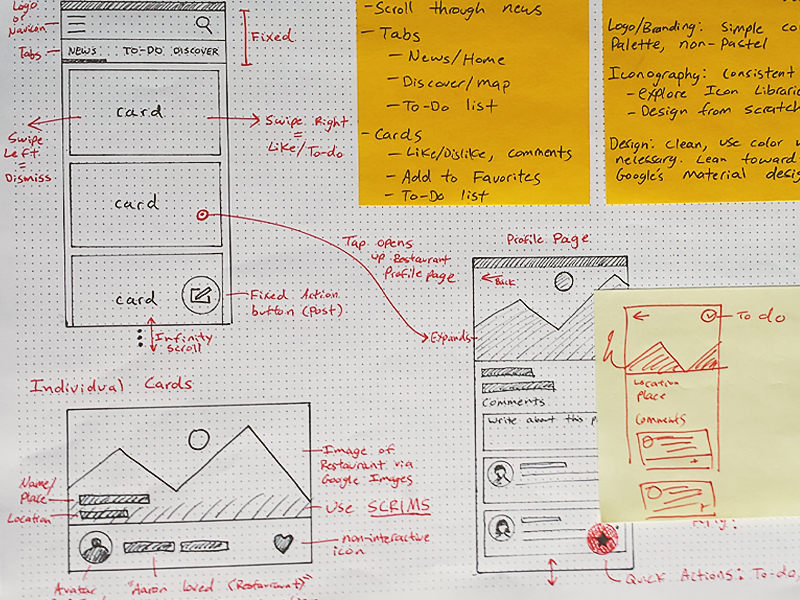 Logo
or
Navicon
Tabs
NEWS TO-DO DISCOVER
Fixed
card
Swipe
Left
=
Dismiss
Swipe Right
=
Like/To-do
card
card
Tap opens
up Restaurant
Profile page
Fixed Action
button (Post)
Infinity
Scroll
Expands
-Scroll through news
- Tabs
- News/Home
- Discover/map
- To-Do list
- Cards
- Like/Dislike, comments
- Add to Favorites
- To-Do list
Logo/Branding: Simple
Palette, non-Pastel
Iconography: consistent
- explore Icon
- Design from scratch
Design: Clean, use color
necessary. Lean toward
Google's material
Individual Cards
Name/
Place
Location
Image of
Restaurant via
Google Images
Use SCRIMS
non-interactive
icon
Avatar
"Aaron loved (Restaurant)"
Profile Page
Back
Comments
Write about this
To do
Location
place
Comments
Quick Actions: To-do,